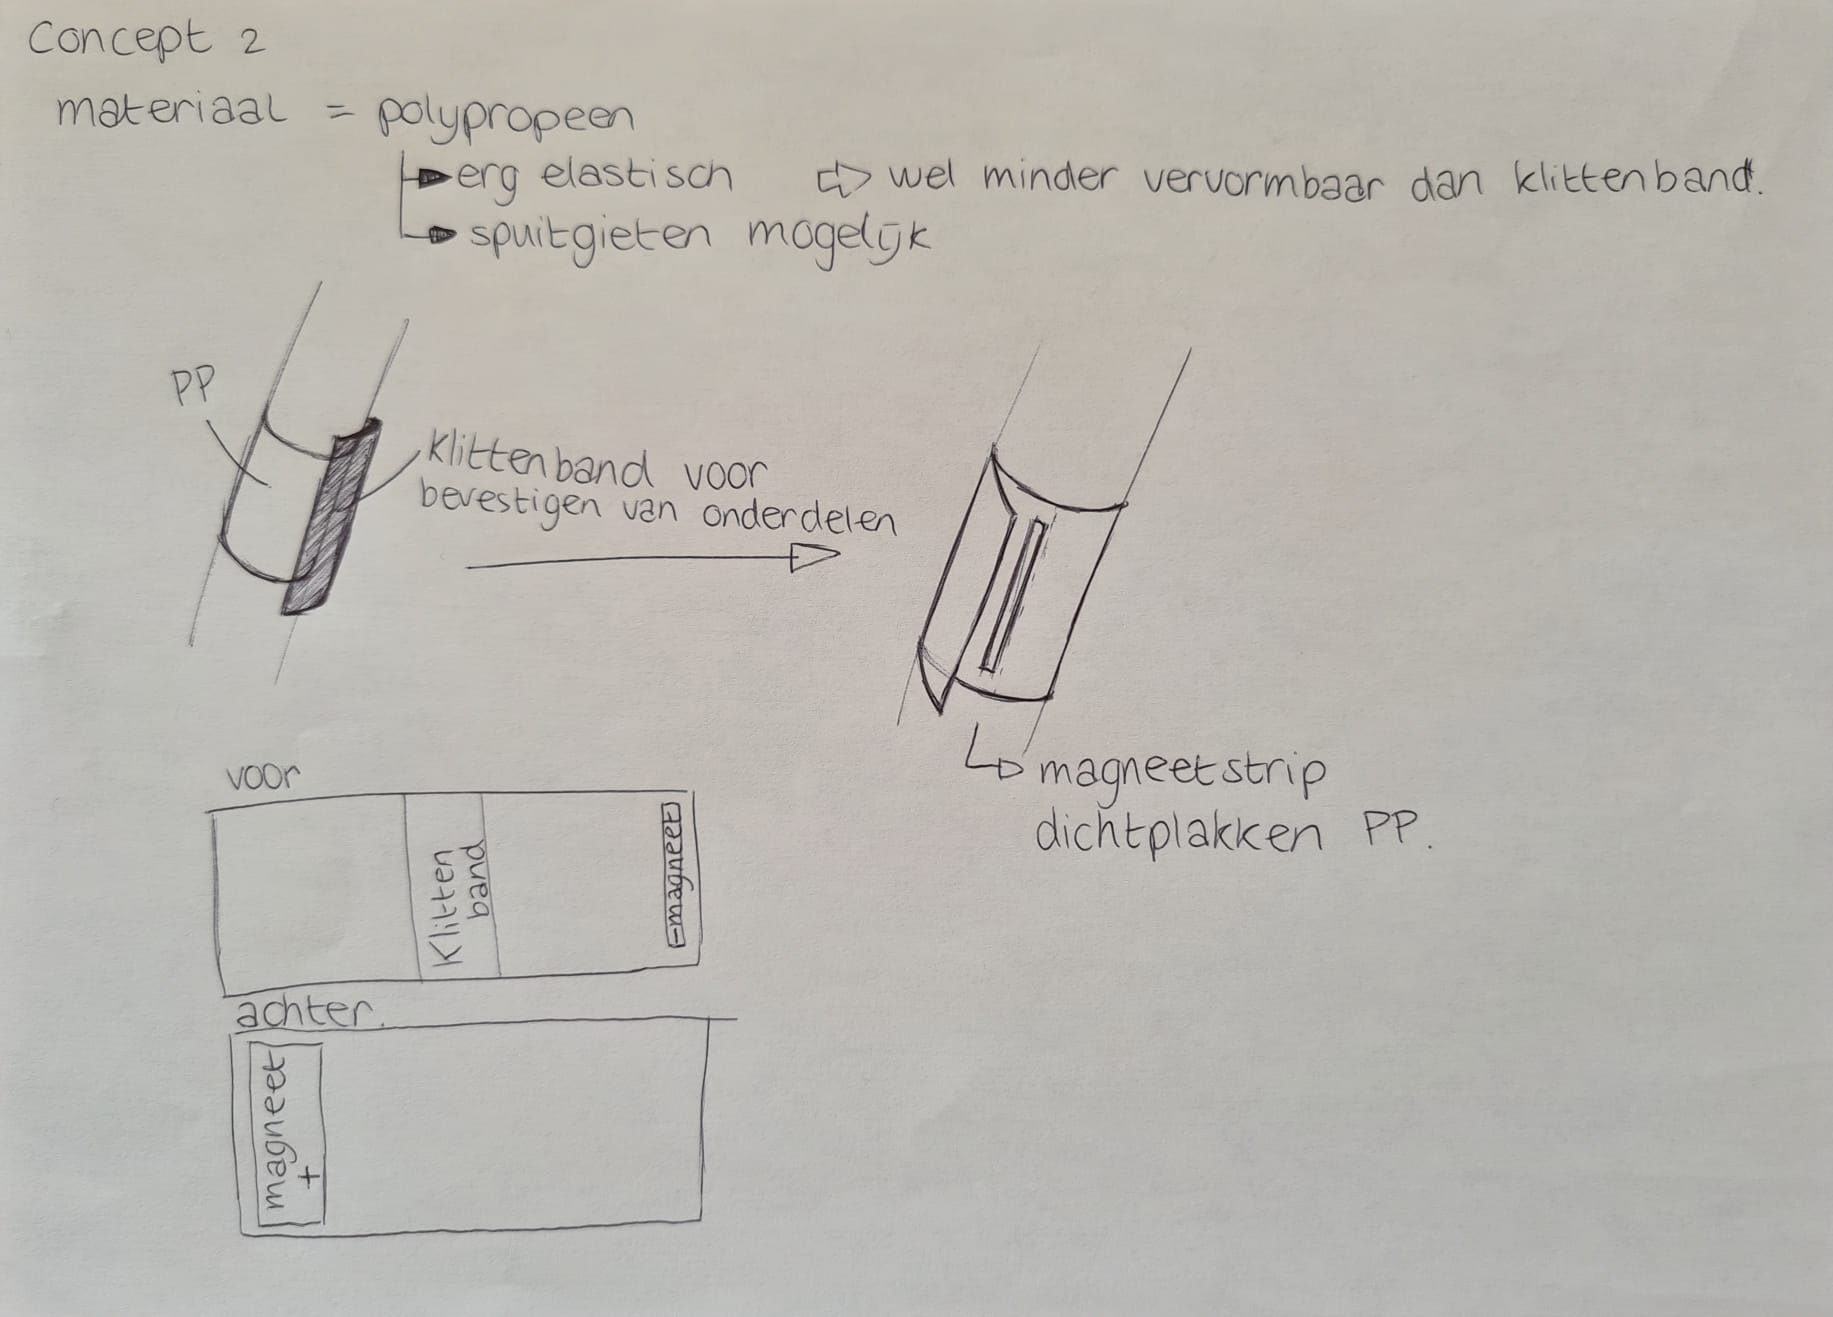 Concept 2
materiaal = polypropeen
erg elastisch ⇨ wel minder vervormbaar dan klittenband.
spuitgieten mogelijk
PP
Klittenband voor
bevestigen van onderdelen
magneetstrip
dichtplakken PP.
voor
Klitten
band
-magneet
achter.
magneet
+